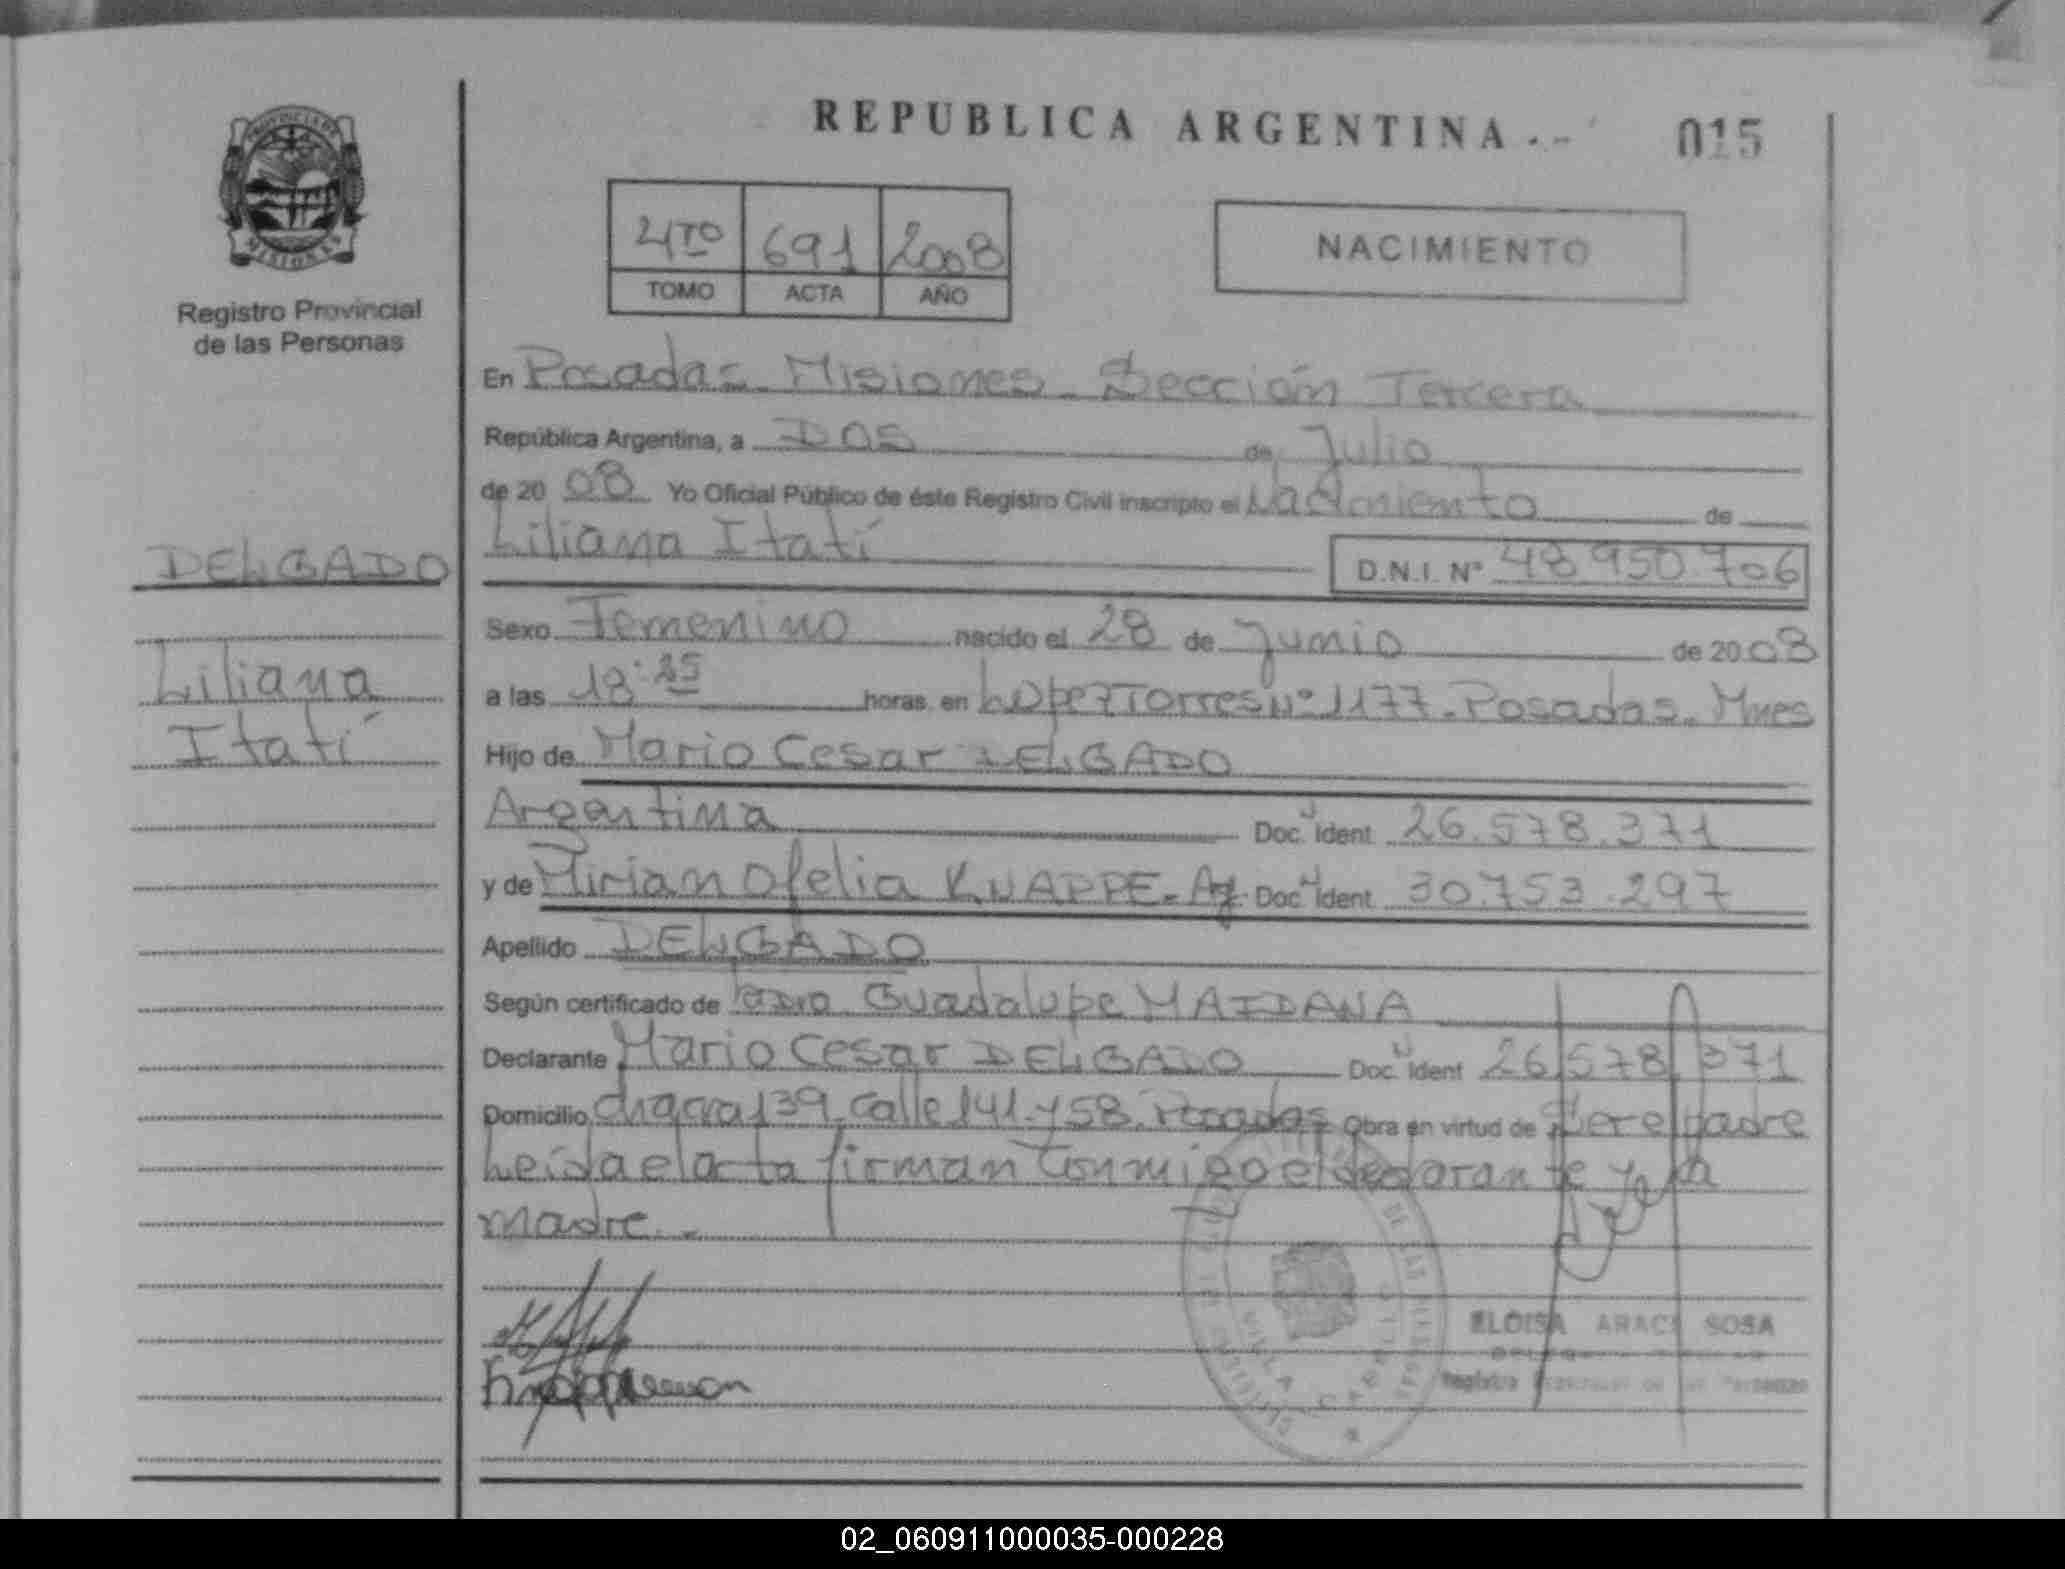 REPUBLICA ARGENTINA.-
015
PROVINCIA DE
MISIONES
Registro Provincial
de las Personas
4TO 691 2008
TOMO ACTA AÑO
NACIMIENTO
En Posadas. Misiones. Sección Tercera
República Argentina, a DOS de Julio
de 2008 Yo Oficial Público de éste Registro Civil inscripto el Nacimiento de
Liliana Itatí D.N.I. N° 48.950.706
DELGADO
Liliana
Itatí
Sexo Femenino nacido el 28 de Junio de 2008
a las 18: horas. en López Torres N° 1177. Posadas. Mnes
Hijo de Mario Cesar DELGADO
Argentina Doc. Ident 26.578.371
y de Mirian Ofelia KNAPPE. Ag. Doc. Ident 30.753.297
Apellido DELGADO
Según certificado de Guadalupe MAIDANA
Declarante Mario Cesar DELGADO Doc. Ident 26.578.371
Domicilio chacra 139. calle 141 y 58. Posadas Obra en virtud de Ser el padre
Leída el acta firman conmigo el declarante y la
madre.-
VILLA CABELLO
ELOISA ARACI SOSA
Registro Provincial de las Personas
02_060911000035-000228